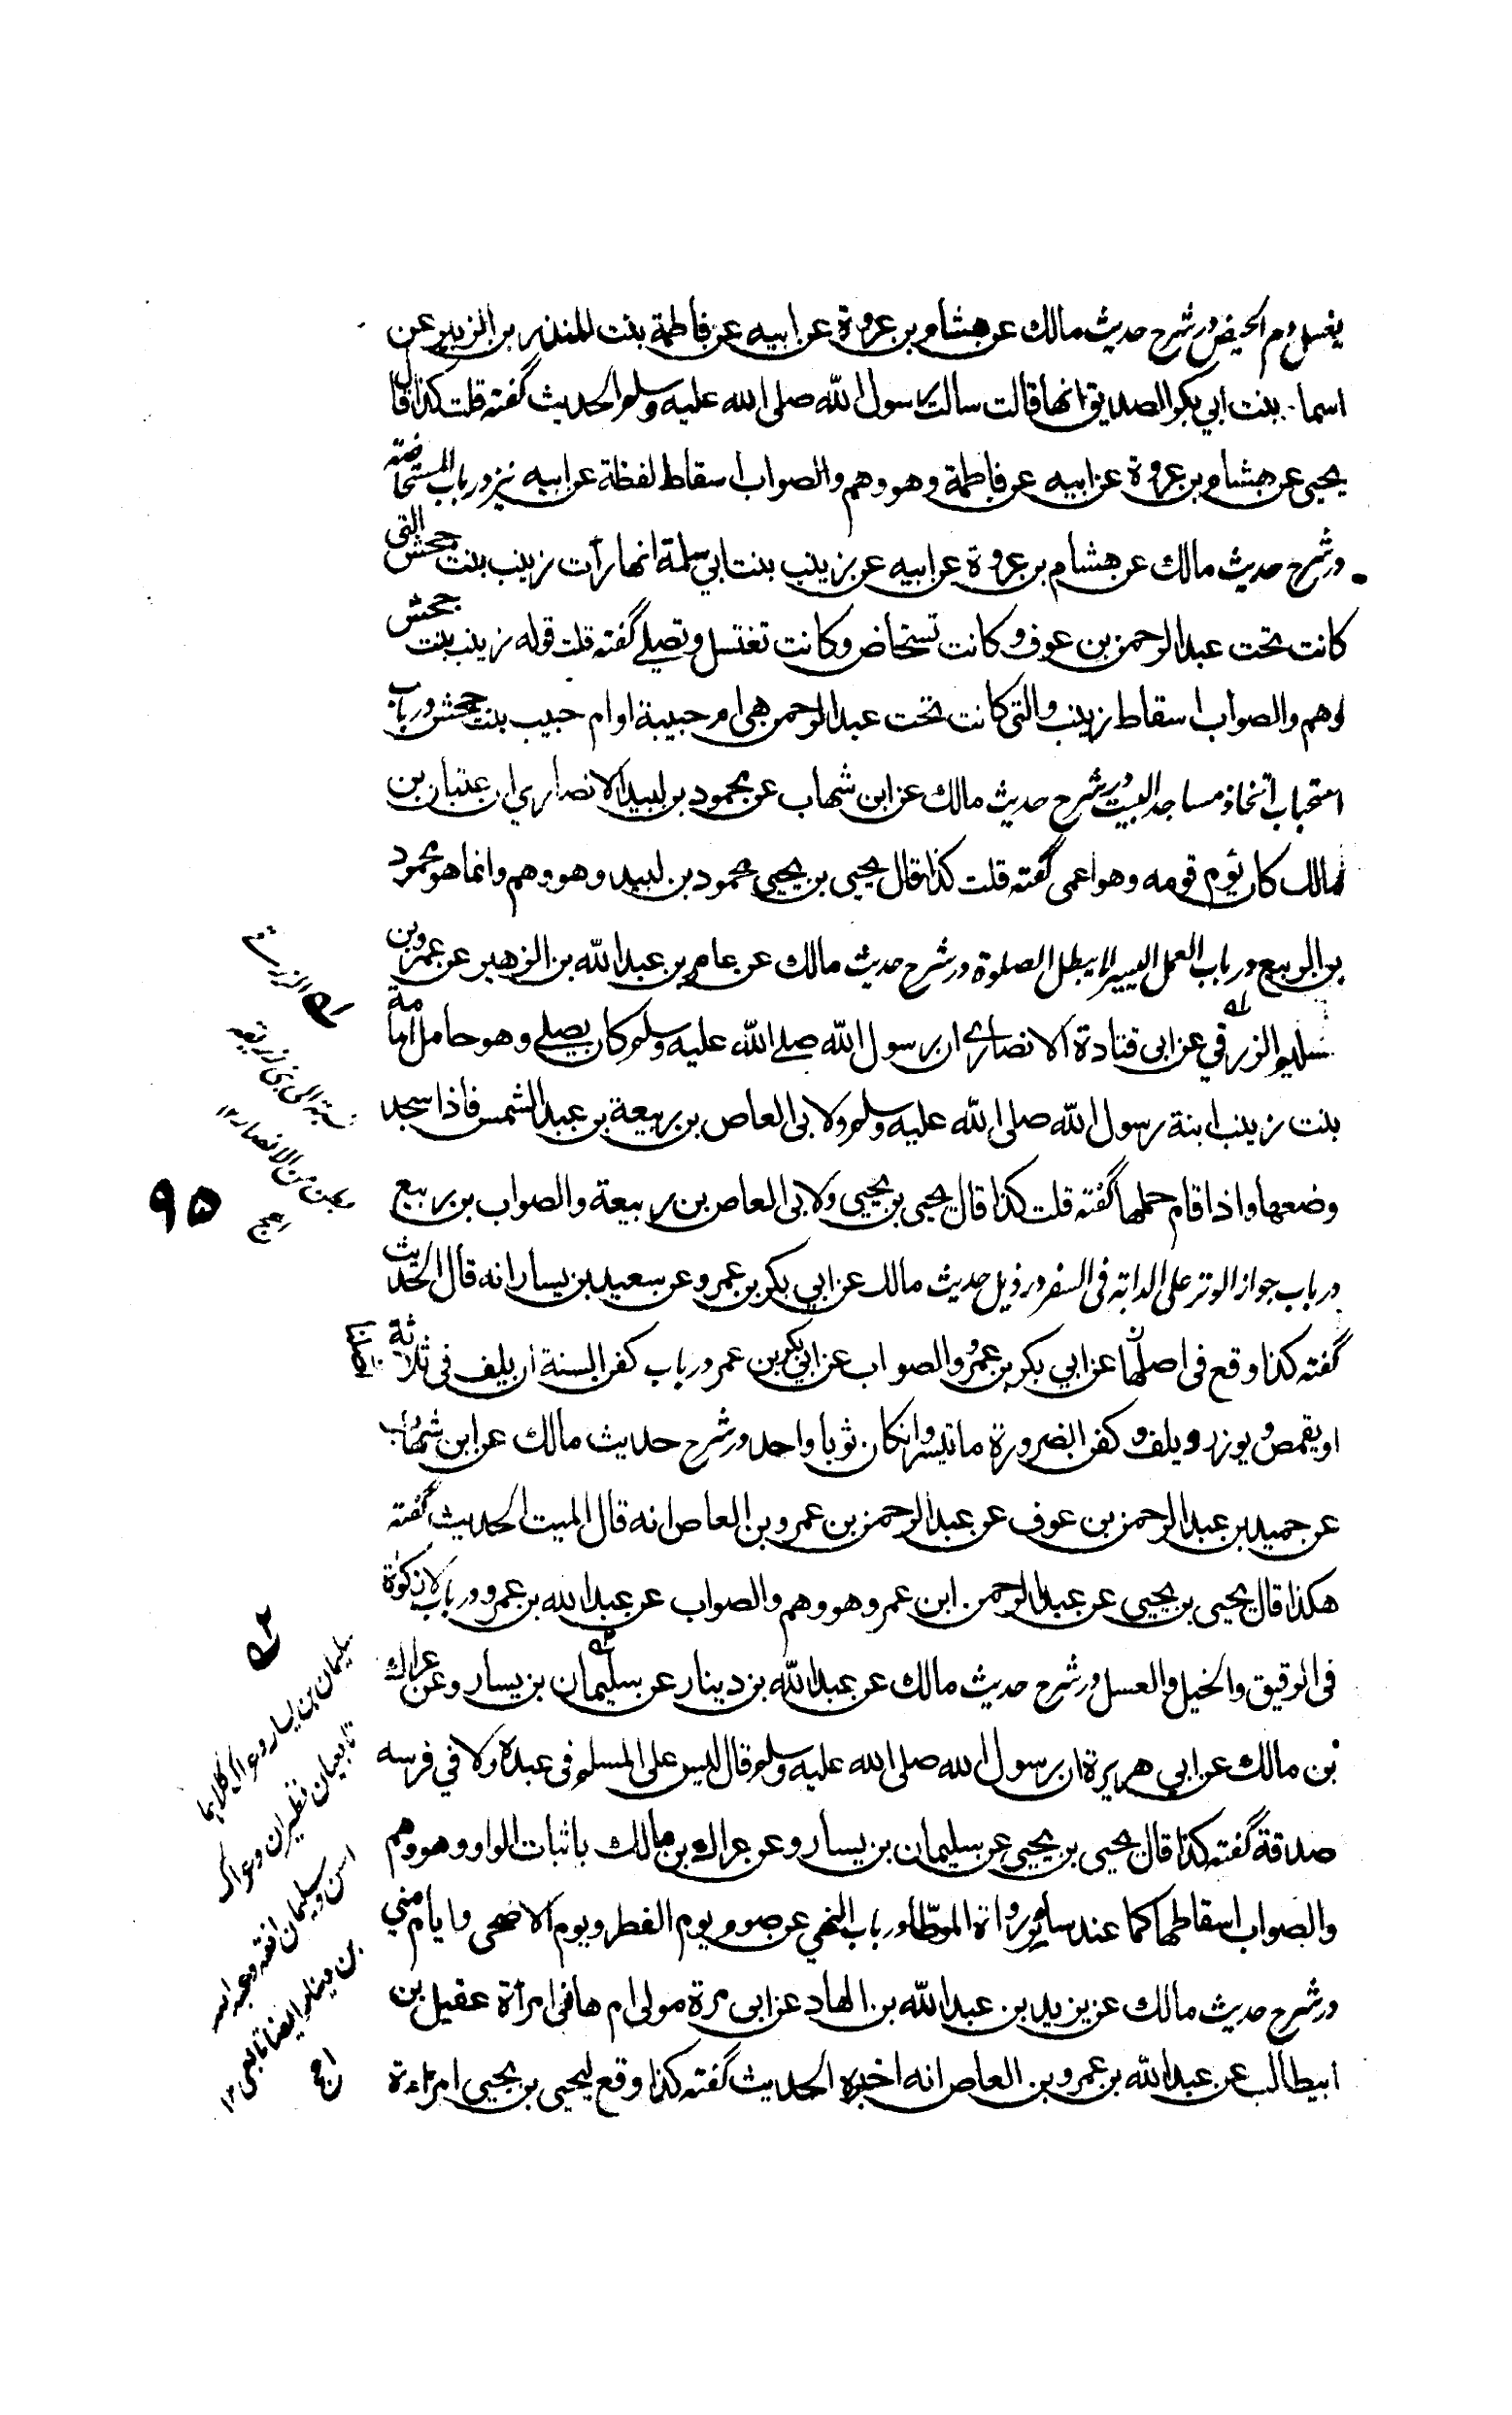 يغسل دم الحيض در شرح حديث مالك عن هشام بن عروة عن ابيه عن فاطمة بنت المنذر بن الزبير عن
اسماء بنت ابي بكر الصديق انها قالت سالت رسول الله صلى الله عليه وسلم الحديث گفته قلت كذا قال
يحيى عن هشام بن عروة عن ابيه عن فاطمة وهو وهم والصواب اسقاط لفظة عن ابيه نيز در باب المستحاضة
در شرح حديث مالك عن هشام بن عروة عن ابيه عن زينب بنت ابي سلمة انها رأت زينب بنت جحش التي
كانت تحت عبد الرحمن بن عوف وكانت تستحاض وكانت تغتسل وتصلے گفته قلت قوله زينب بنت جحش
وهم والصواب اسقاط زينب والتى كانت تحت عبد الرحمن هى ام حبيبة او ام حبيب بنت جحش در باب
استحباب اتخاذ مساجد البيت در شرح حديث مالك عن ابن شهاب عن محمود بن لبيد الانصاري ان عتبان بن
مالك كان يؤم قومه وهو اعمى گفته قلت كذا قال يحيى بن يحيى محمود بن لبيد وهو وهم وانما هو محمود
بن الربيع در باب العمل اليسير لا يبطل الصلوة در شرح حديث مالك عن عامر بن عبد الله بن الزهير عن عمرو بن
سليم الزرقي عن ابى قتادة الانصارے ان رسول الله صلے الله عليه وسلم كان يصلے وهو حامل امامة
بنت زينب ابنة رسول الله صلى الله عليه وسلم ولابى العاص بن ربيعة بن عبد الشمس فاذا سجد
وضعها واذا قام حملها گفته قلت كذا قال يحيى بن يحيى ولابى العاص بن ربيعة والصواب بن ربيع
در باب جواز الوتر على الدابة فى السفر در ذيل حديث مالك عن ابي بكر بن عمرو عن سعيد بن يسار انه قال الحديث
گفته كذا وقع فى اصلها عن ابي بكر بن عمرو والصواب عن ابي بكر بن عمر در باب كفن السنة ان يلف فى ثلاثة
او يقمص ويوزر ويلف وكفن الضرورة ما تيسر وانكان ثوبا واحد در شرح حديث مالك عن ابن شهاب
عن حميد بن عبد الرحمن بن عوف عن عبد الرحمن بن عمرو بن العاص انه قال الميت الحديث گفته
هكذا قال يحيى بن يحيى عن عبد الرحمن ابن عمر وهو وهم والصواب عن عبد الله بن عمرو در باب لا زكوة
فى الرقيق والخيل والعسل در شرح حديث مالك عن عبد الله بن دينار عن سليمان بن يسار وعن عراك
بن مالك عن ابي هريرة ان رسول الله صلى الله عليه وسلم قال ليس على المسلم فى عبده ولا في فرسه
صدقة گفته كذا قال يحيى بن يحيى عن سليمان بن يسار وعن عراك بن مالك باثبات الواو وهو وهم
والصواب اسقاطها كما عند ساير رواة الموطّا در باب النهي عن صوم يوم الفطر ويوم الاضحى وايام منى
در شرح حديث مالك عن يزيد بن عبد الله بن الهاد عن ابى مرة مولى ام هانى امرأة عقيل بن
ابيطالب عن عبد الله بن عمرو بن العاص انه اخبره الحديث گفته كذا وقع ليحيى بن يحيى امراءة
نسبة الى بنى زريق
بطن من الانصار ١٢
٩٥
سليمان بن يسار وعراك كلاهما
تابعيان نظيران وعراك
اسن وسليمان افقه وعبد الله
بن دينار ايضا تابعى ١٢